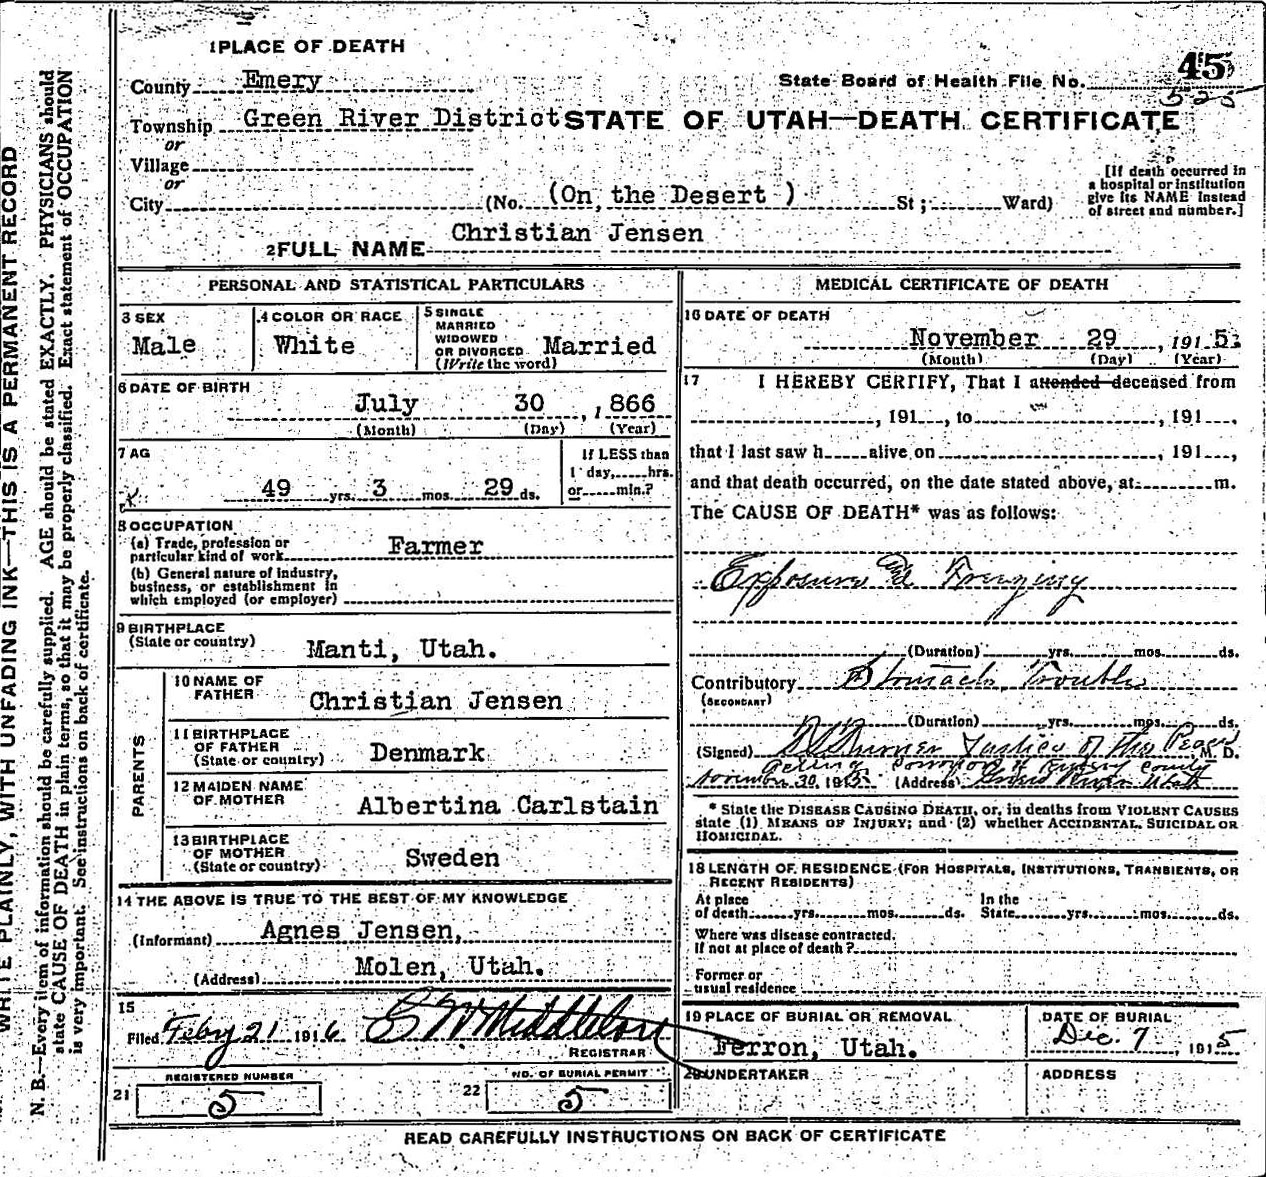 1 PLACE OF DEATH
County Emery
State Board of Health File No. 45
525
Township Green River District STATE OF UTAH—DEATH CERTIFICATE
or
Village
or
City (No. (On the Desert ) St ; Ward)
[If death occurred in
a hospital or institution
give its NAME instead
of street and number.]
2 FULL NAME Christian Jensen
PERSONAL AND STATISTICAL PARTICULARS
3 SEX
Male
4 COLOR OR RACE
White
5 SINGLE
MARRIED
WIDOWED
OR DIVORCED Married
(Write the word)
6 DATE OF BIRTH
July 30 , 1 866
(Month) (Day) (Year)
7 AG
49 yrs. 3 mos. 29 ds.
If LESS than
1 day, hrs.
or min.?
8 OCCUPATION
(a) Trade, profession or
particular kind of work Farmer
(b) General nature of industry,
business, or establishment in
which employed (or employer)
9 BIRTHPLACE
(State or country) Manti, Utah.
PARENTS
10 NAME OF
FATHER Christian Jensen
11 BIRTHPLACE
OF FATHER
(State or country) Denmark
12 MAIDEN NAME
OF MOTHER Albertina Carlstain
13 BIRTHPLACE
OF MOTHER
(State or country) Sweden
14 THE ABOVE IS TRUE TO THE BEST OF MY KNOWLEDGE
(Informant) Agnes Jensen,
(Address) Molen, Utah.
15
Filed Feby 21 1916 Middleton
REGISTRAR
REGISTERED NUMBER
21 5
NO. OF BURIAL PERMIT
22 5
MEDICAL CERTIFICATE OF DEATH
16 DATE OF DEATH
November 29 , 191 5
(Month) (Day) (Year)
17 I HEREBY CERTIFY, That I attended deceased from
, 191 , to , 191 ,
that I last saw h alive on , 191 ,
and that death occurred, on the date stated above, at m.
The CAUSE OF DEATH* was as follows:
Exposure and Freezing
(Duration) yrs. mos. ds.
Contributory Stomach Trouble
(SECONDARY)
(Duration) yrs. mos. ds.
(Signed) Justice of the Peace M. D.
Acting Coroner of Emery County
November 30, 1915 (Address) Green River Utah
* State the DISEASE CAUSING DEATH, or, in deaths from VIOLENT CAUSES
state (1) MEANS OF INJURY; and (2) whether ACCIDENTAL, SUICIDAL OR
HOMICIDAL.
18 LENGTH OF RESIDENCE (FOR HOSPITALS, INSTITUTIONS, TRANSIENTS, OR
RECENT RESIDENTS)
At place In the
of death yrs. mos. ds. State yrs. mos. ds.
Where was disease contracted,
If not at place of death?
Former or
usual residence
19 PLACE OF BURIAL OR REMOVAL
Ferron, Utah.
DATE OF BURIAL
Dec. 7 , 1915
20 UNDERTAKER
ADDRESS
READ CAREFULLY INSTRUCTIONS ON BACK OF CERTIFICATE
WRITE PLAINLY, WITH UNFADING INK—THIS IS A PERMANENT RECORD
N. B.—Every item of information should be carefully supplied. AGE should be stated EXACTLY. PHYSICIANS should
state CAUSE OF DEATH in plain terms, so that it may be properly classified. Exact statement of OCCUPATION
is very important. See instructions on back of certificate.